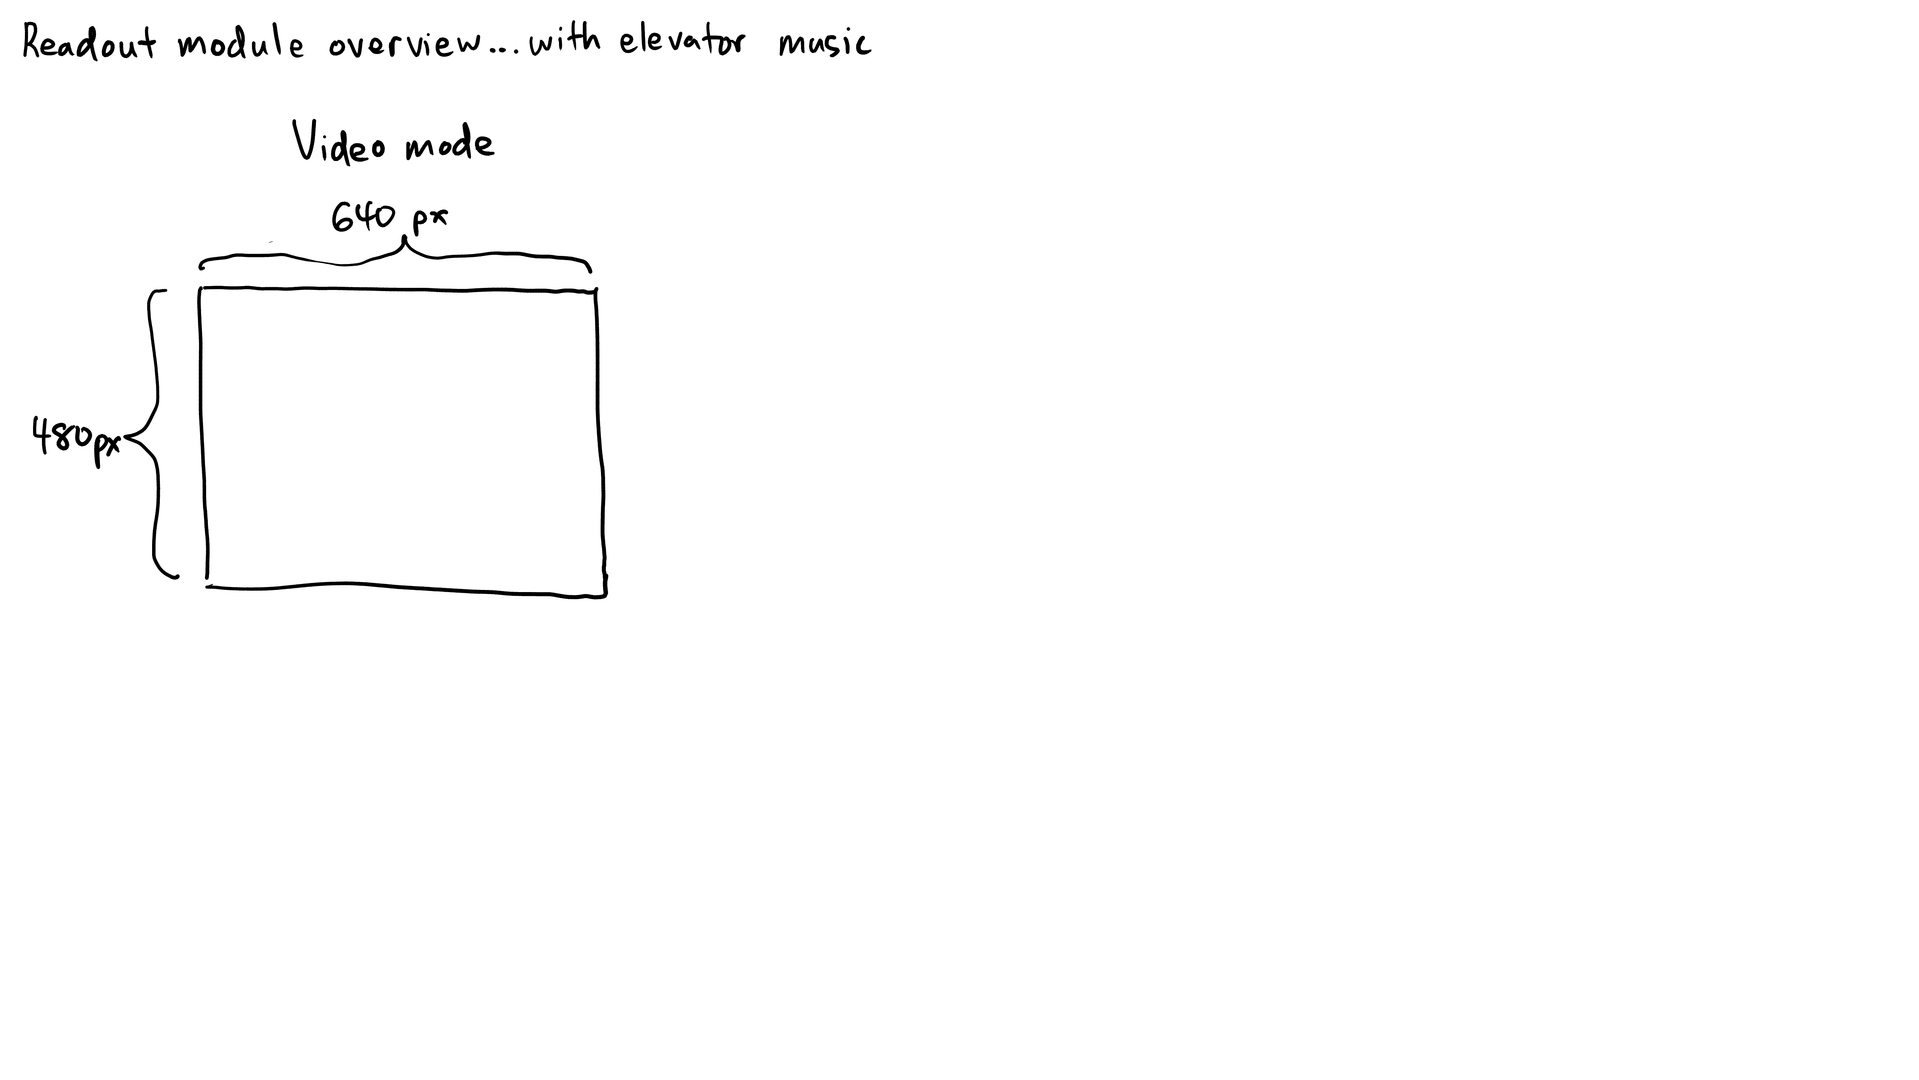 Readout module overview...with elevator music
Video mode
640 px
480px